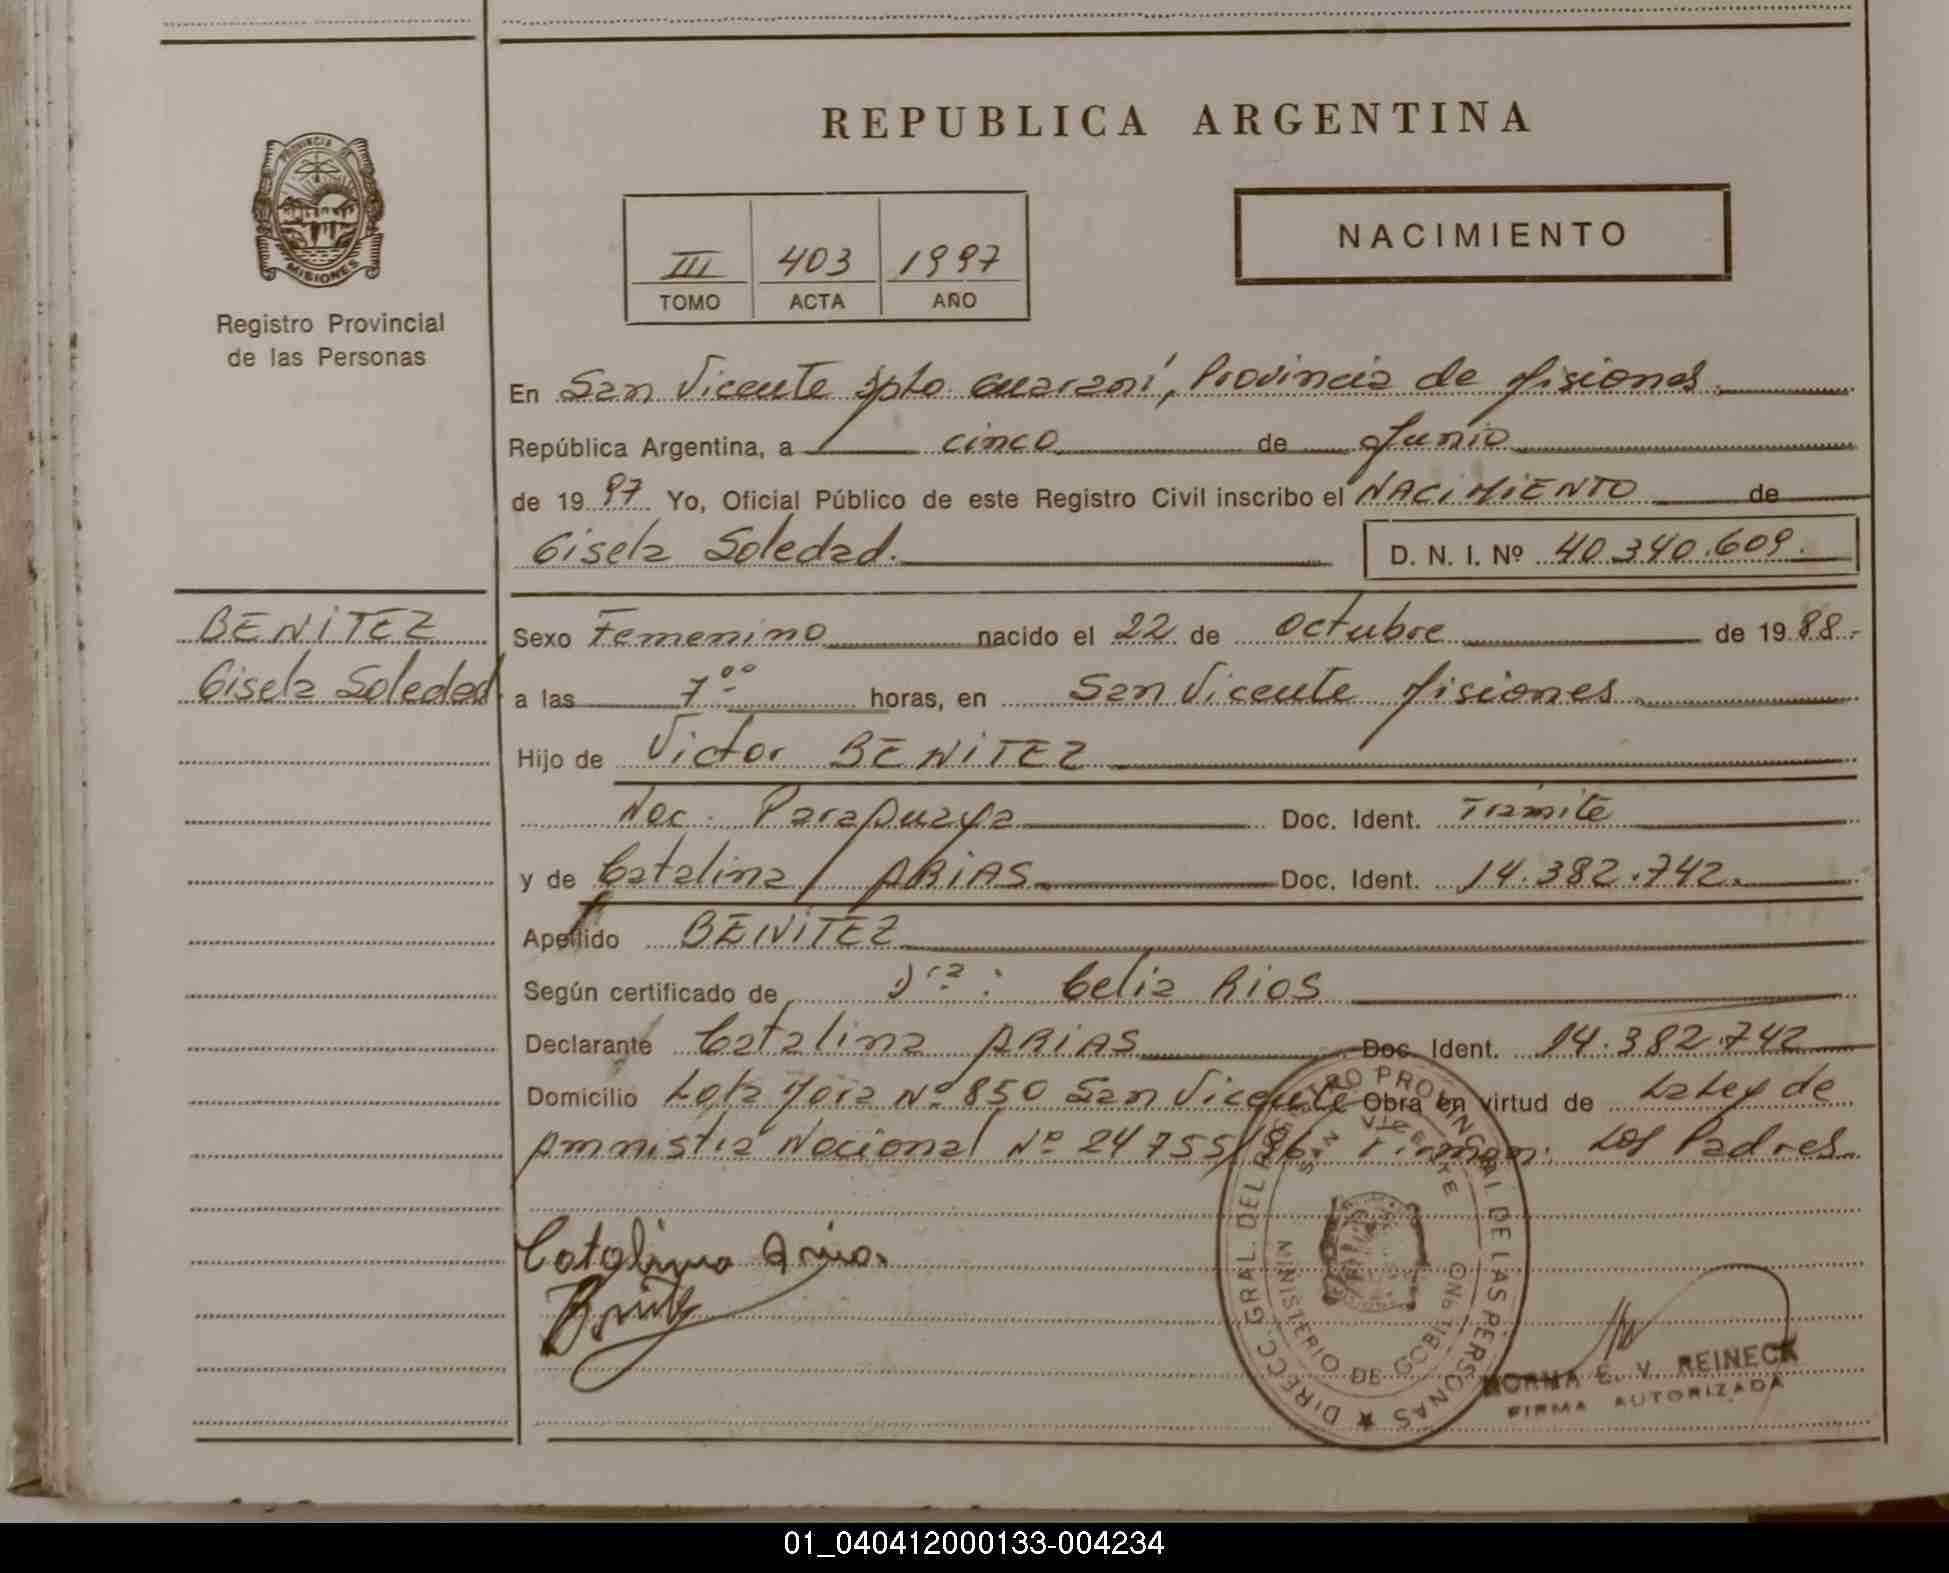 REPUBLICA ARGENTINA
PROVINCIA DE
MISIONES
Registro Provincial
de las Personas
NACIMIENTO
III 403 1997
TOMO ACTA AÑO
En San Vicente Dpto Guaraní, Provincia de Misiones.
República Argentina, a cinco de Junio
de 1997 Yo, Oficial Público de este Registro Civil inscribo el NACIMIENTO de
Gisela Soledad.
D. N. I. Nº 40.340.609.
BENITEZ
Gisela Soledad
Sexo Femenino nacido el 22 de octubre de 1988.-
a las 7⁰⁰ horas, en San Vicente Misiones
Hijo de Victor BENITEZ
Nac. Paraguaya Doc. Ident. Trámite
y de Catalina ARIAS Doc. Ident. 14.382.742.
Apellido BENITEZ
Según certificado de Dra: Celia RIOS
Declarante Catalina ARIAS Doc. Ident. 14.382.742
Domicilio Lote Nº 850 San Vicente Obra en virtud de La Ley de
Amnistia Nacional Nº 24755/96. Firman: Los Padres.
Catalina Arias.
DIRECC. GRAL. DEL REGISTRO PROVINCIAL DE LAS PERSONAS
SAN VICENTE
MINISTERIO DE GOBIERNO
NORMA E. V. REINECK
FIRMA AUTORIZADA
01_040412000133-004234